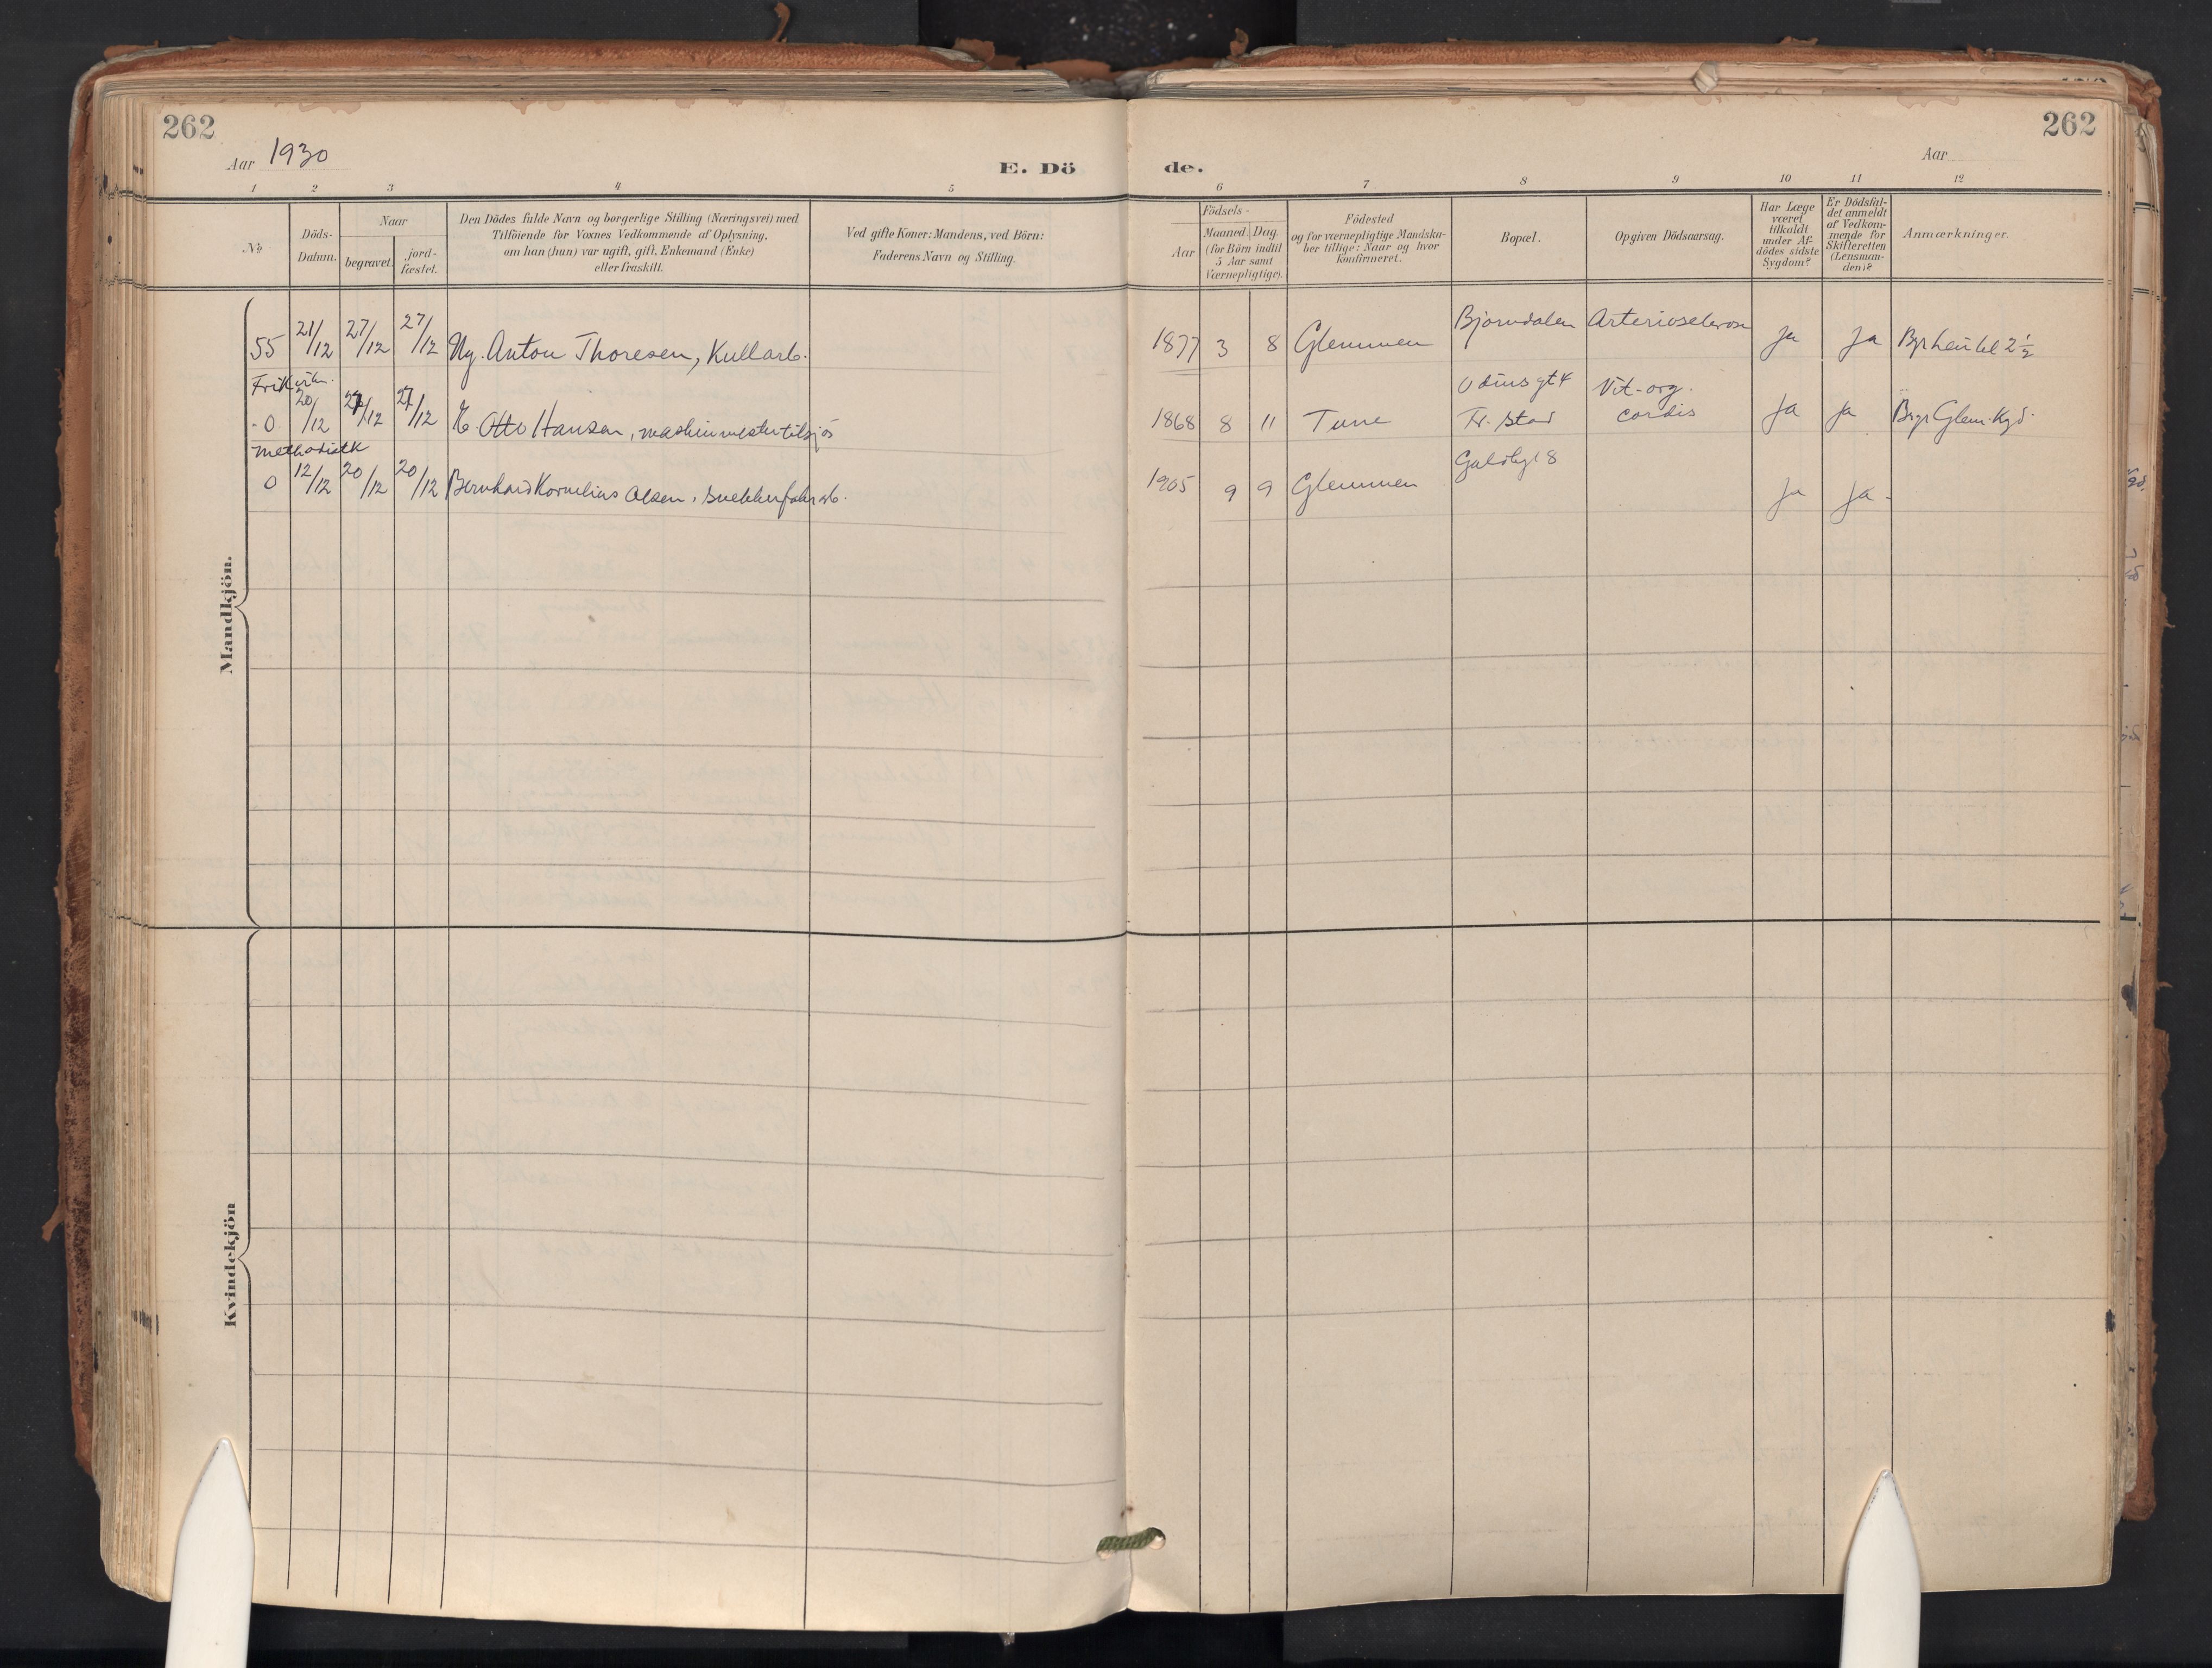 262
262
Aar 1930
Aar
E. Dö
de.
1 2 3 4 5
6 7 8 9 10 11 12
No
Döds-
Datum.
Naar
begravet.
jord-
fæstet.
Den Dödes fulde Navn og borgerlige Stilling (Næringsvei) med
Tilföiende for Voxnes Vedkommende af Oplysning,
om han (hun) var ugift, gift, Enkemand (Enke)
eller fraskilt.
Ved gifte Koner: Mandens, ved Börn:
Faderens Navn og Stilling.
Födsels-
Aar
Maaned. Dag.
(for Börn indtil
5 Aar samt
Værnepligtige).
Födested
og for værnepligtige Mandska-
ber tillige: Naar og hvor
konfirmeret.
Bopæl.
Opgiven Dödsaarsag.
Har Læge
været
tilkaldt
under Af-
dödes sidste
Sygdom?
Er Dödsfal-
det anmeldt
af Vedkom-
mende for
Skifteretten
(Lensman-
den)?
Anmærkninger.
Mandkjön.
55 21/12 27/12 27/12 Ug. Anton Thoresen, Kullarb. 1877 3 8 Glemmen Bjørndalen Ja Ja
0 20/12 27/12 27/12 Otto Hansen, maskinmester tilsjøs 1868 8 11 Tune Odinsgt 4
Fr. stad Vit. org.
cordis Ja Ja Glem. Kgd.
Methodistk
0 12/12 20/12 20/12 Bernhard Kornelius Olsen, 1905 9 9 Glemmen Ja Ja
Kvindekjön